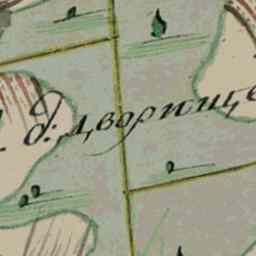 д: дворище